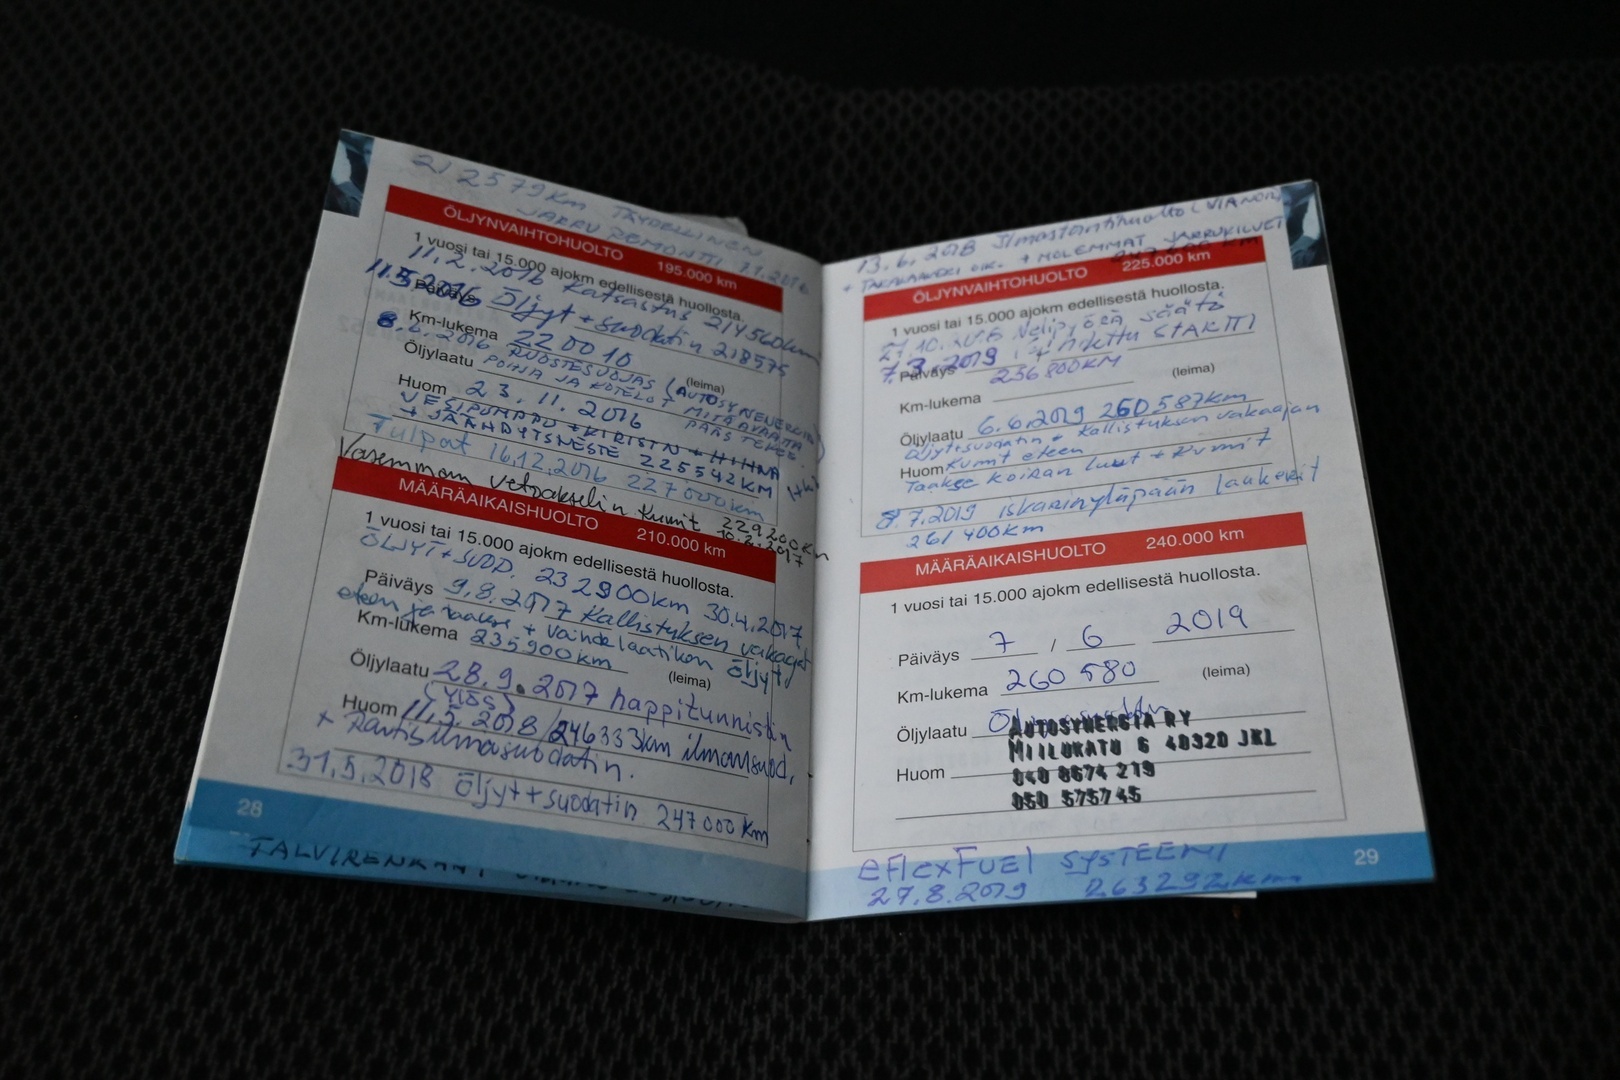 212579km TÄYDELLINEN
JARRU REMONTTI 7.1.2016
ÖLJYNVAIHTOHUOLTO 195.000 km
1 vuosi tai 15.000 ajokm edellisestä huollosta.
11.2.2016 Katsastus 214560km
Päiväys 11.5.2016 Öljyt + suodatin 218575
Km-lukema 220010
8.6.2016 RUOSTESUOJAS (AUTOSYNENERGIA)
Öljylaatu POHJA JA KOTELOT MITÄ AVAATTA
(leima)
PÄÄS TEKEE.
Huom 23.11.2016
VESIPUMPPU + KIRISTN + HIHNA
+ JÄÄHDYTSNESTE 225542KM
Tulpat 16.12.2016 227000km
Vasemman vetoakselin kumit 229200km
10.2.2017
MÄÄRÄAIKAISHUOLTO 210.000 km
1 vuosi tai 15.000 ajokm edellisestä huollosta.
ÖLJYT + SUOD. 232900km 30.4.2017
Päiväys 9.8.2017 Kallistuksen vakaajat
eteen ja taakse + vaihdelaatikon öljyt
Km-lukema 235900km
(leima)
Öljylaatu 28.9.2017 happitunnistin
(YLÖS)
Huom 11.5.2018 / 246333km ilmansuod,
+ Raitisilmasuodatin.
31.5.2018 Öljyt + suodatin 247000 km
28
13.6.2018 Ilmastointihuolto (VIANOR)
+ TAKALAAKERI OIK. + MOLEMMAT JARRUKILVET
ÖLJYNVAIHTOHUOLTO 225.000 km
1 vuosi tai 15.000 ajokm edellisestä huollosta.
Nelipyörä säätö
Päiväys 7.3.2019 STARTTI
256800KM
(leima)
Km-lukema
Öljylaatu 6.6.2019 260587km
Öljyt + suodatin + Kallistuksen vakaajan
Huom Kumit eteen
Taakse koiran luut + Kumit
8.7.2019 iskarinyläpään laakerit
261400km
MÄÄRÄAIKAISHUOLTO 240.000 km
1 vuosi tai 15.000 ajokm edellisestä huollosta.
Päiväys 7 / 6 2019
Km-lukema 260580
(leima)
Öljylaatu
AUTOSYNERGIA RY
MIILUKATU 6 40320 JKL
Huom
040 0674 219
050 575745
eFlexFuel SYSTEEMI
27.8.2019 263292km
29
TALVIRENKAAT